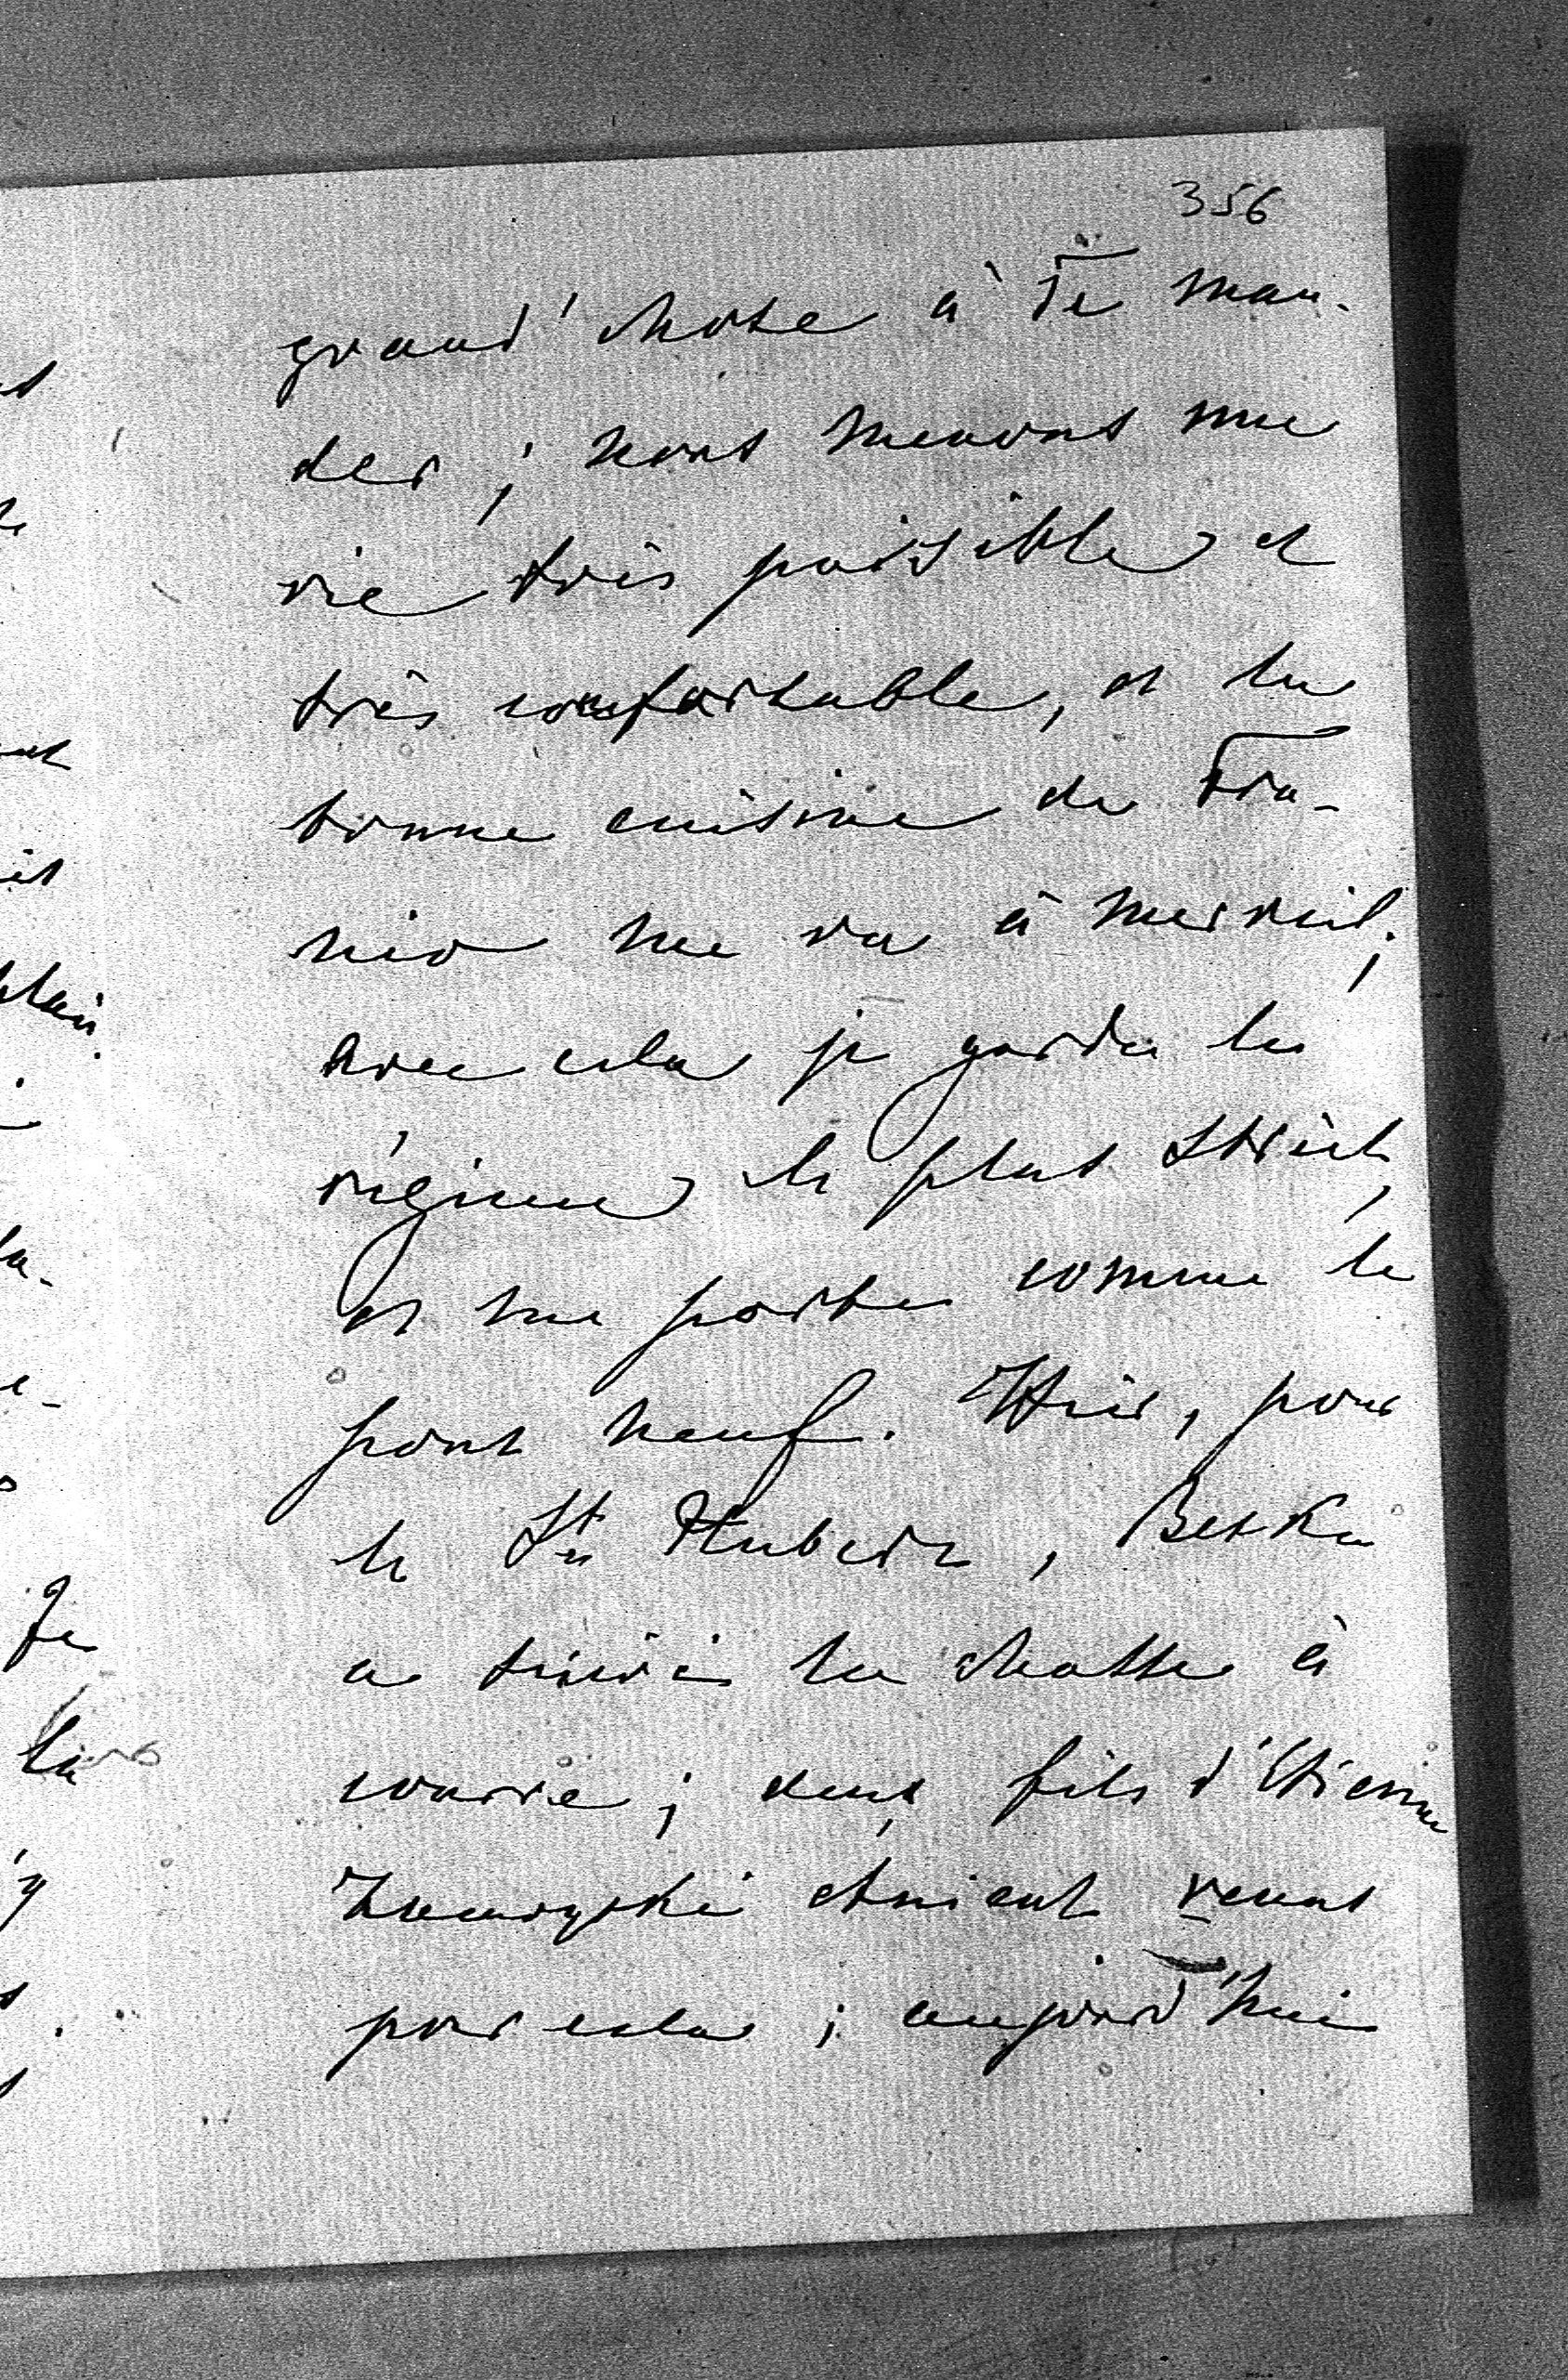 356
grand'chose à Te man-
der ; nous menons une
vie très paisible et
très confortable, et la
bonne cuisine de Fra-
nio me va à merveil;
avec cela je garde le
régime le plus strict,
et me porte comme le
pont neuf. Hier, pour
la St Hubert, Betka
a suivi la chasse à
courre ; deux fils d'Etienne
Zamoyski étaient venus
pour cela ; aujourd'hui